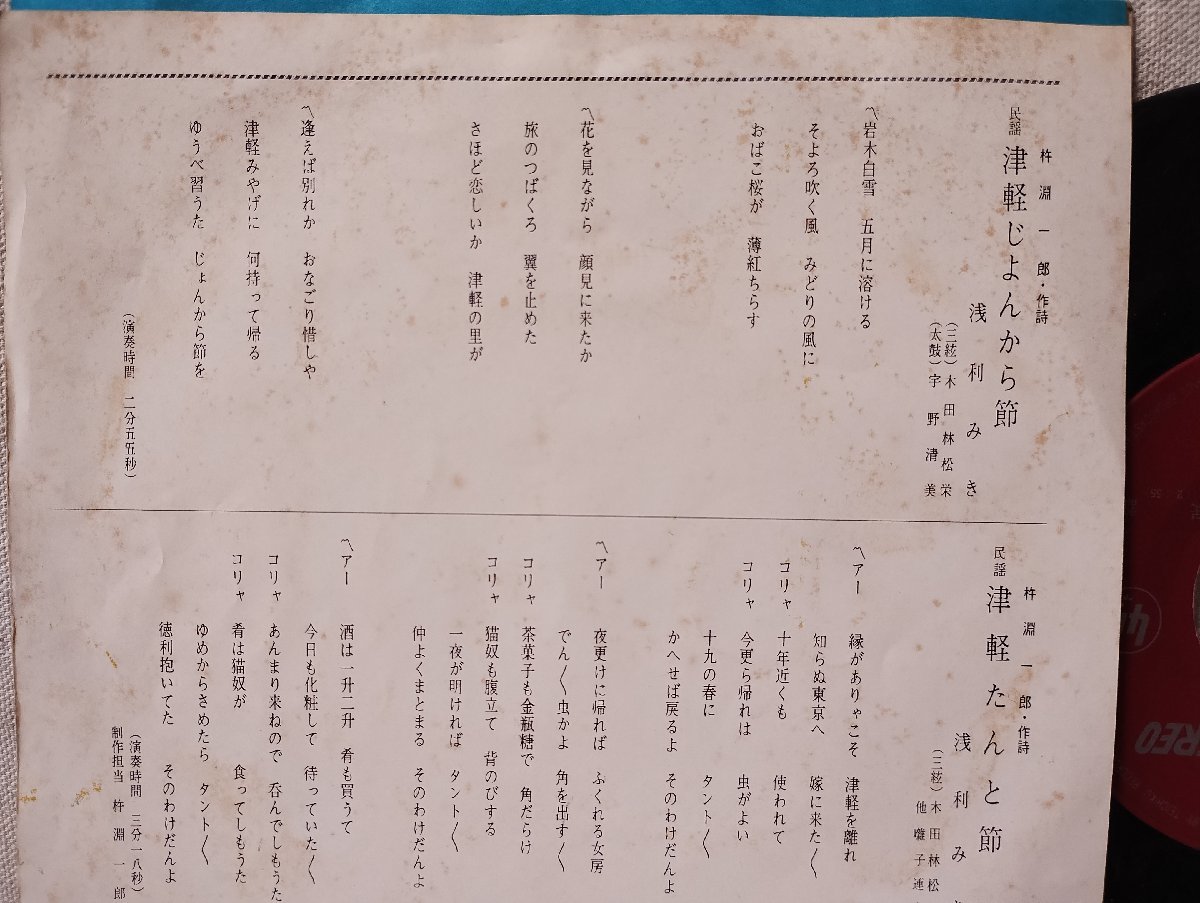 杵淵一郎・作詩
民謡 津軽じよんから節
浅利みき
(三絃)木田林松栄
(太鼓)宇野清美
〽岩木白雪 五月に溶ける
そよろ吹く風 みどりの風に
おばこ桜が 薄紅ちらす
〽花を見ながら 顔見に来たか
旅のつばくろ 翼を止めた
さほど恋しいか 津軽の里が
〽逢えば別れか おなごり惜しや
津軽みやげに 何持って帰る
ゆうべ習うた じょんから節を
(演奏時間 二分五五秒)
杵淵一郎・作詩
民謡 津軽たんと節
浅利み
(三絃)木田林松
他囃子連
〽アー 縁がありゃこそ 津軽を離れ
知らぬ東京へ 嫁に来た〳〵
コリャ 十年近くも 使われて
コリャ 今更ら帰れは 虫がよい
十九の春に タント〳〵
かへせば戻るよ そのわけだんよ
〽アー 夜更けに帰れば ふくれる女房
でん〳〵虫かよ 角を出す〳〵
コリャ 茶菓子も金瓶糖で 角だらけ
コリャ 猫奴も腹立て 背のびする
一夜が明ければ タント〳〵
仲よくまとまる そのわけだんよ
〽アー 酒は一升二升 肴も買うて
今日も化粧して 待っていた〳〵
コリャ あんまり来ねので 呑んでしもうた
コリャ 肴は猫奴が 食ってしもうた
ゆめからさめたら タント〳〵
徳利抱いてた そのわけだんよ
(演奏時間 三分一八秒)
制作担当 杵淵一郎